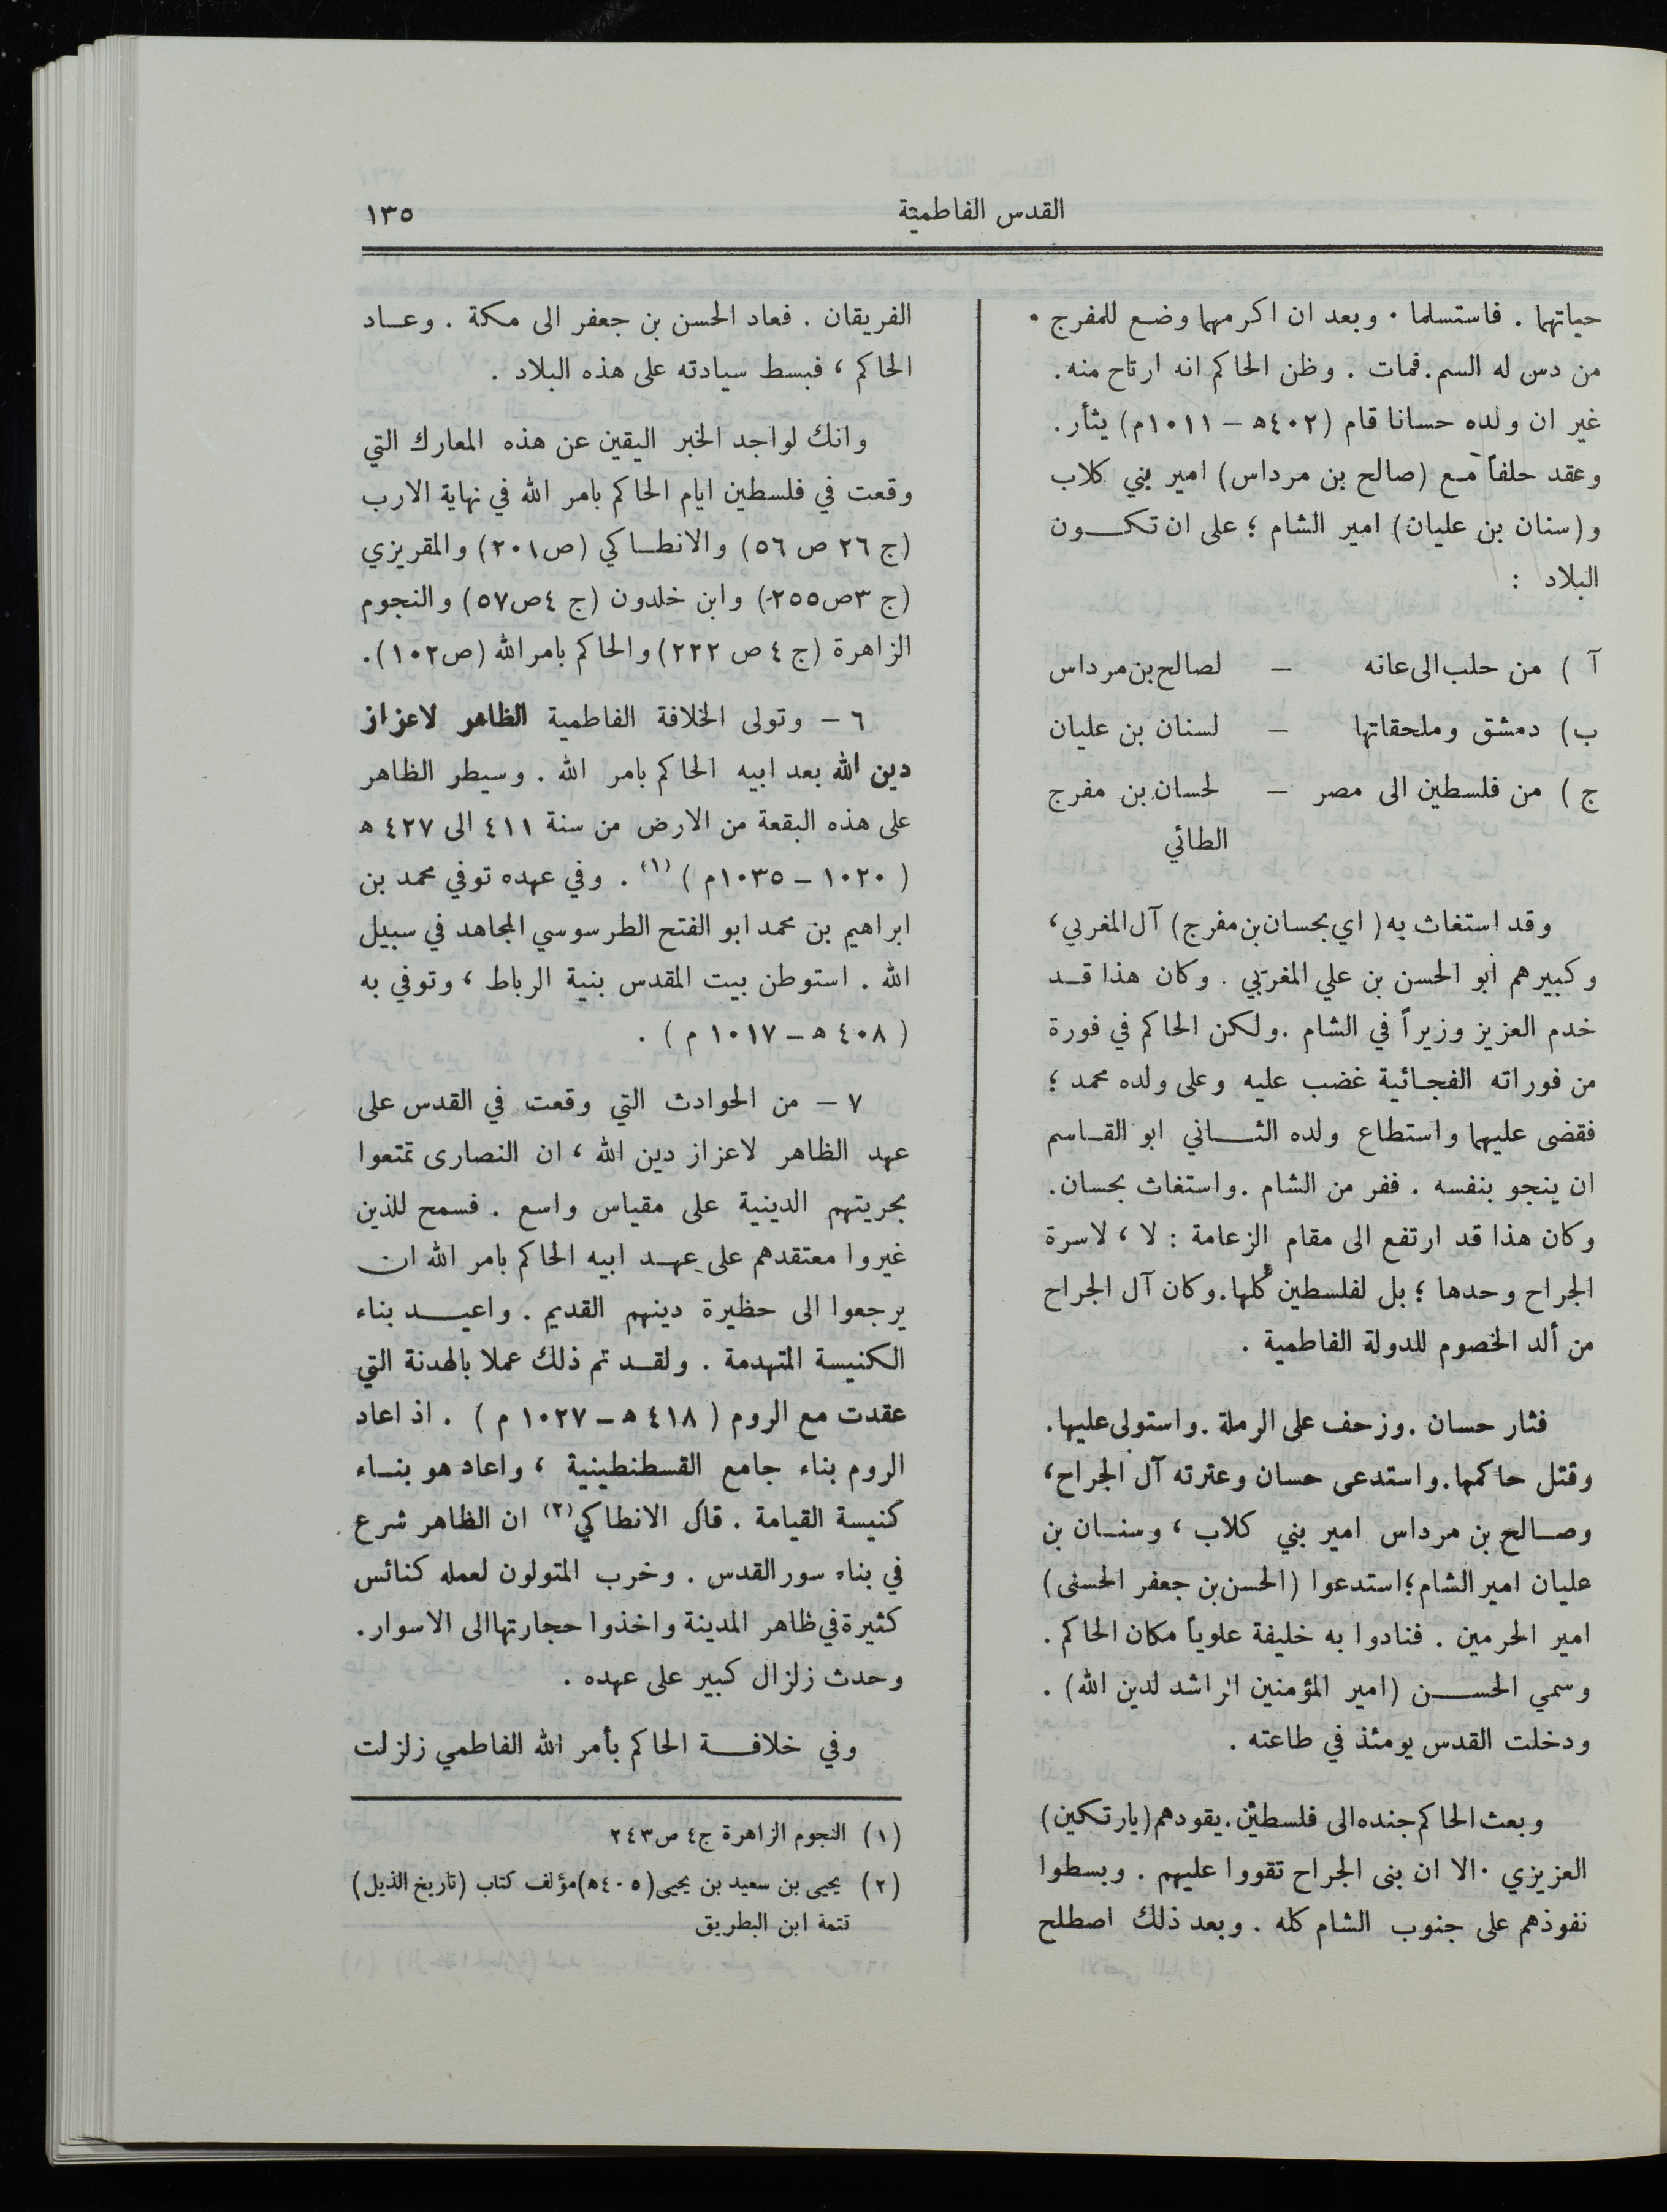 القدس الفاطمية
١٣٥
حياتهما . فاستسلما . وبعد ان اكرمهما وضع للمفرج .
من دس له السم . فمات . وظن الحاكم انه ارتاح منه .
غير ان ولده حسانا قام (٤٠٢ھ – ١٠١١م) يثأر .
وعقد حلفاً مع (صالح بن مرداس) امير بني كلاب
و (سنان بن عليان) امير الشام ؛ على ان تكون
البلاد :
آ ) من حلب الى عانه – لصالح بن مرداس
ب) دمشق وملحقاتها – لسنان بن عليان
ج ) من فلسطين الى مصر – لحسان بن مفرج
الطائي
وقد استغاث به ( اي بحسان بن مفرج) آل المغربي ،
وكبيرهم ابو الحسن بن علي المغربي . وكان هذا قد
خدم العزيز وزيراً في الشام . ولكن الحاكم في فورة
من فوراته الفجائية غضب عليه وعلى ولده محمد ؛
فقضى عليهما واستطاع ولده الثاني ابو القاسم
ان ينجو بنفسه . ففر من الشام . واستغاث بحسان .
وكان هذا قد ارتفع الى مقام الزعامة : لا ، لاسرة
الجراح وحدها ؛ بل لفلسطين كلها . وكان آل الجراح
من ألد الخصوم للدولة الفاطمية .
فثار حسان . وزحف على الرملة . واستولى عليها .
وقتل حاكمها . واستدعى حسان وعترته آل الجراح ،
وصالح بن مرداس امير بني كلاب ، وسنان بن
عليان امير الشام ؛ استدعوا (الحسن بن جعفر الحسنى)
امير الحرمين . فنادوا به خليفة علوياً مكان الحاكم .
وسمي الحسن (امير المؤمنين الراشد لدين الله) .
ودخلت القدس يومئذ في طاعته .
وبعث الحاكم جنده الى فلسطين . يقودهم (يارتكين)
العزيزي . الا ان بنى الجراح تقووا عليهم . وبسطوا
نفوذهم على جنوب الشام كله . وبعد ذلك اصطلح
الفريقان . فعاد الحسن بن جعفر الى مكة . وعاد
الحاكم ، فبسط سيادته على هذه البلاد .
وانك لواجد الخبر اليقين عن هذه المعارك التي
وقعت في فلسطين ايام الحاكم بامر الله في نهاية الارب
(ج ٢٦ ص ٥٦) والانطاكي (ص٢٠١) والمقريزي
(ج ٣ص٢٥٥) وابن خلدون (ج ٤ص٥٧) والنجوم
الزاهرة (ج ٤ ص ٢٢٢) والحاكم بامر الله (ص١٠٢).
٦ – وتولى الخلافة الفاطمية الظاهر لاعزاز
دين الله بعد ابيه الحاكم بامر الله . وسيطر الظاهر
على هذه البقعة من الارض من سنة ٤١١ الى ٤٢٧ ھ
( ١٠٢٠ – ١٠٣٥م ) (١) . وفي عهده توفي محمد بن
ابراهيم بن محمد ابو الفتح الطرسوسي المجاهد في سبيل
الله . استوطن بيت المقدس بنية الرباط ، وتوفي به
( ٤٠٨ ھ – ١٠١٧ م ) .
٧ – من الحوادث التي وقعت في القدس على
عهد الظاهر لاعزاز دين الله ، ان النصارى تمتعوا
بحريتهم الدينية على مقياس واسع . فسمح للذين
غيروا معتقدهم على عهد ابيه الحاكم بامر الله ان
يرجعوا الى حظيرة دينهم القديم . واعيد بناء
الكنيسة المتهدمة . ولقد تم ذلك عملا بالهدنة التي
عقدت مع الروم ( ٤١٨ ھ – ١٠٢٧ م ) . اذ اعاد
الروم بناء جامع القسطنطينية ، واعاد هو بناء
كنيسة القيامة . قال الانطاكي (٢) ان الظاهر شرع
في بناء سور القدس . وخرب المتولون لعمله كنائس
كثيرة في ظاهر المدينة واخذوا حجارتها الى الاسوار .
وحدث زلزال كبير على عهده .
وفي خلافة الحاكم بأمر الله الفاطمي زلزلت
(١) النجوم الزاهرة ج٤ ص٢٤٣
(٢) يحيى بن سعيد بن يحيى (٤٠٥ھ) مؤلف كتاب (تاريخ الذيل)
تتمة ابن البطريق